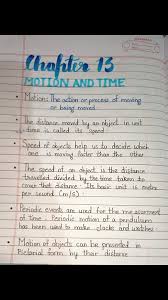 Chapter 13
MOTION AND TIME
• Motion: The action or process of moving
or being moved
• The distance moved by an object in unit
time is called its speed
• Speed of objects help us to decide which
one is moving faster than the other
• The speed of an object is the distance
travelled divided by the time taken to
cover that distance. Its basic unit is metre
per second (m/s)
• Periodic events are used for the measurement
of time. Periodic motion of a pendulum
has been used to make clocks and watches
• Motion of objects can be presented in
Pictorial form by their distance